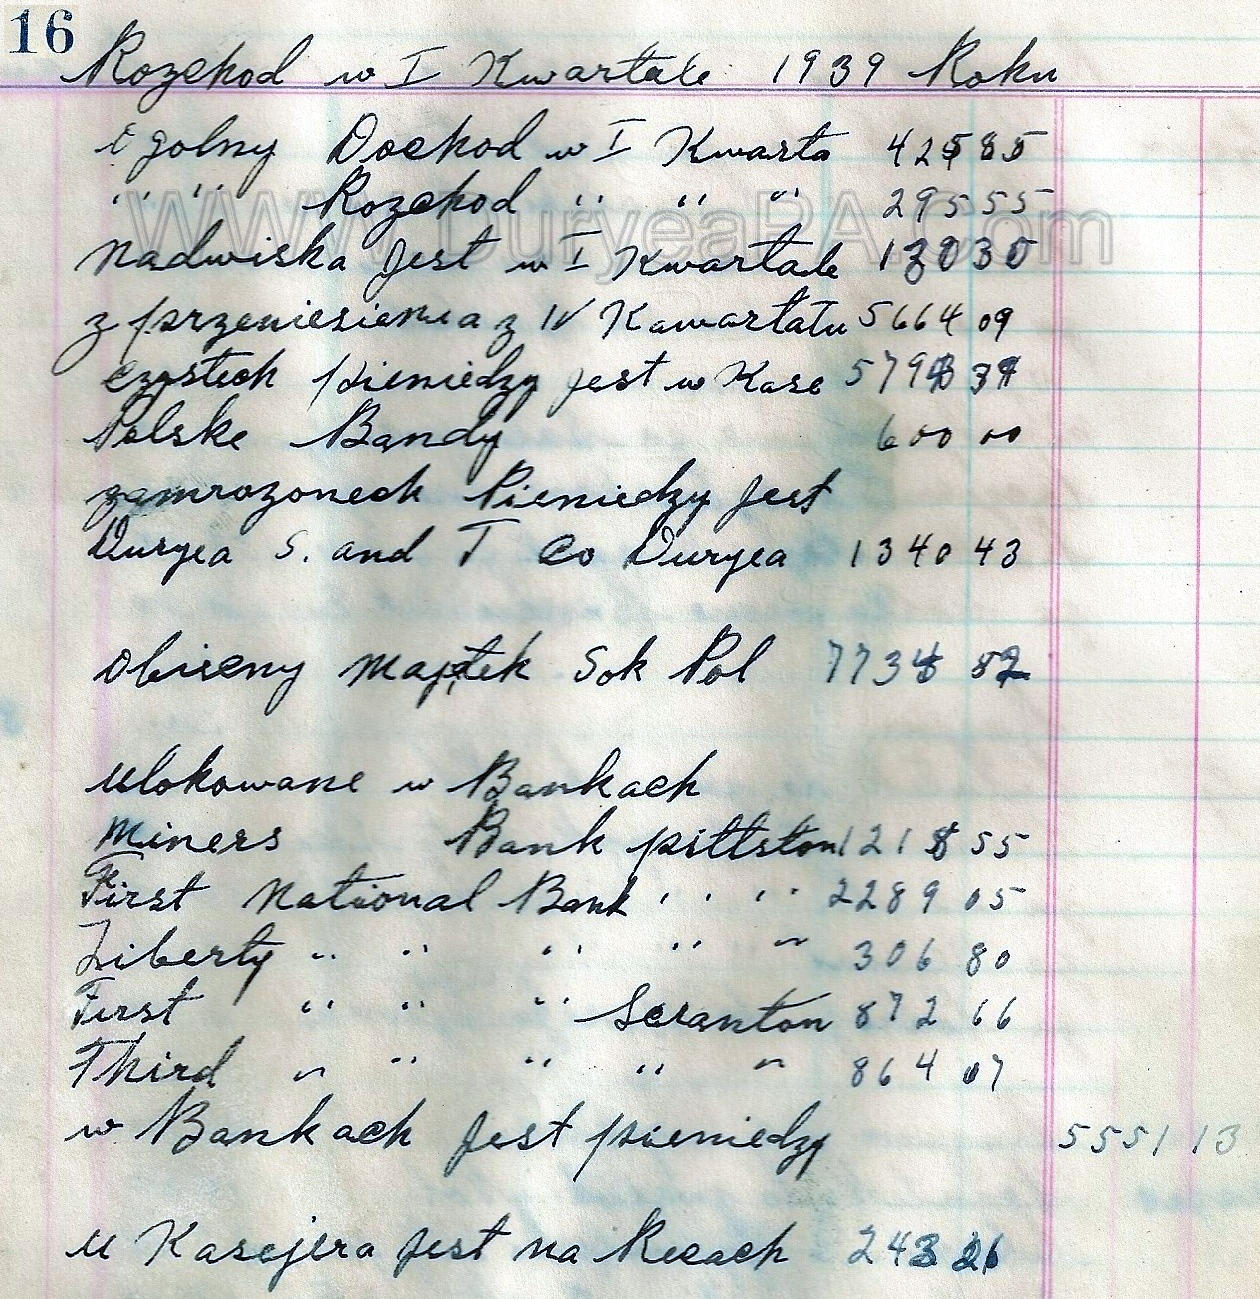 16
Rozchod w I Kwartale 1939 Roku
Ogolny Dochod w I Kwarta 425 85
" " Rozchod " " " 295 55
Nadwiska Jest w I Kwartale 130 30
z przeniesienia z IV Kawartatu 5664 09
czystech pieniedzy jest w Kase 5794 39
Polske Bandy 600 00
zamrozonech Pieniedzy Jest
Duryea S. and T Co Duryea 1340 43
Obieeny Majątek Sok Pol 7734 82
Ulokowane w Bankach
Miners Bank pittston 1218 55
First National Bank " " 2289 05
Liberty " " " " " 306 80
First " " " Scranton 872 66
Third " " " " " 864 07
w Bankach Jest pieniedzy 5551 13
U Kasejera Jest na Recach 243 26
www.DuryeaPA.com